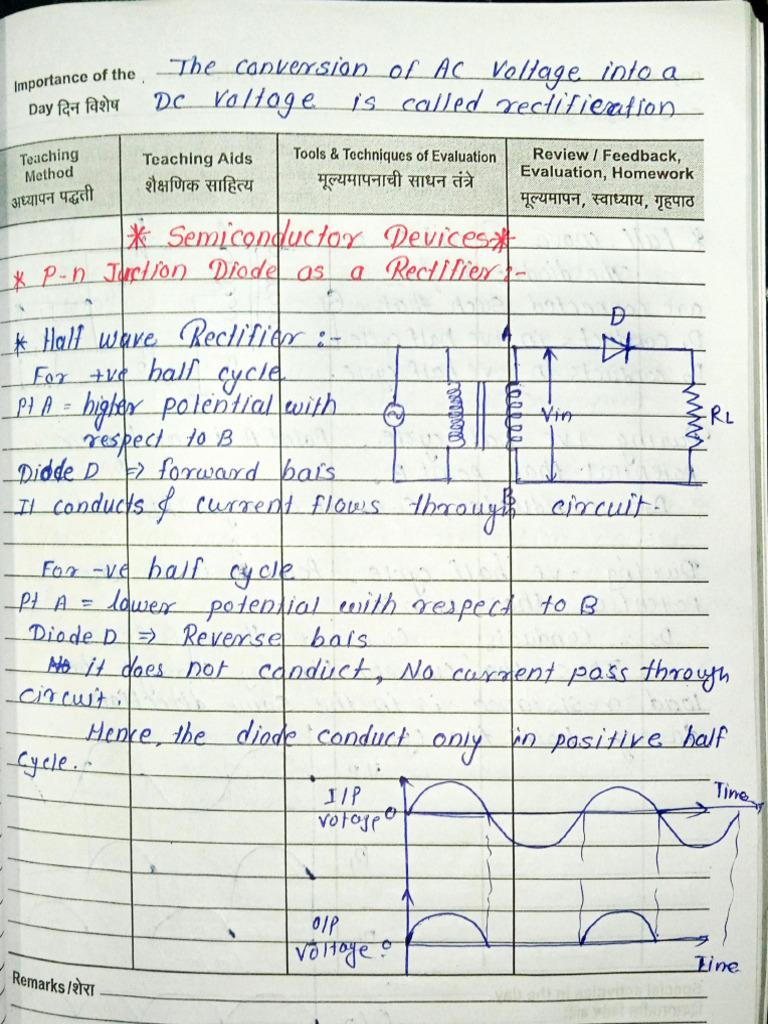 Importance of the The conversion of AC Voltage into a
Day दिन विशेष DC Voltage is called rectification
Teaching Method अध्यापन पद्धती
Teaching Aids शैक्षणिक साहित्य
Tools & Techniques of Evaluation मूल्यमापनाची साधन तंत्रे
Review / Feedback, Evaluation, Homework मूल्यमापन, स्वाध्याय, गृहपाठ
* Semiconductor Devices *
* P-n Juction Diode as a Rectifier:-
* Half wave Rectifier :-
For +ve half cycle
Pt A = higher potential with
respect to B
Diode D => forward bais
It conducts & current flows through circuit.
A
D
Vin
RL
B
For -ve half cycle
Pt A = lower potential with respect to B
Diode D => Reverse bais
it does not conduct, No current pass through
circuit.
Hence, the diode conduct only in positive half
cycle.
I/P
Votage 0
Time
O/P
Voltage 0
Time
Remarks / शेरा